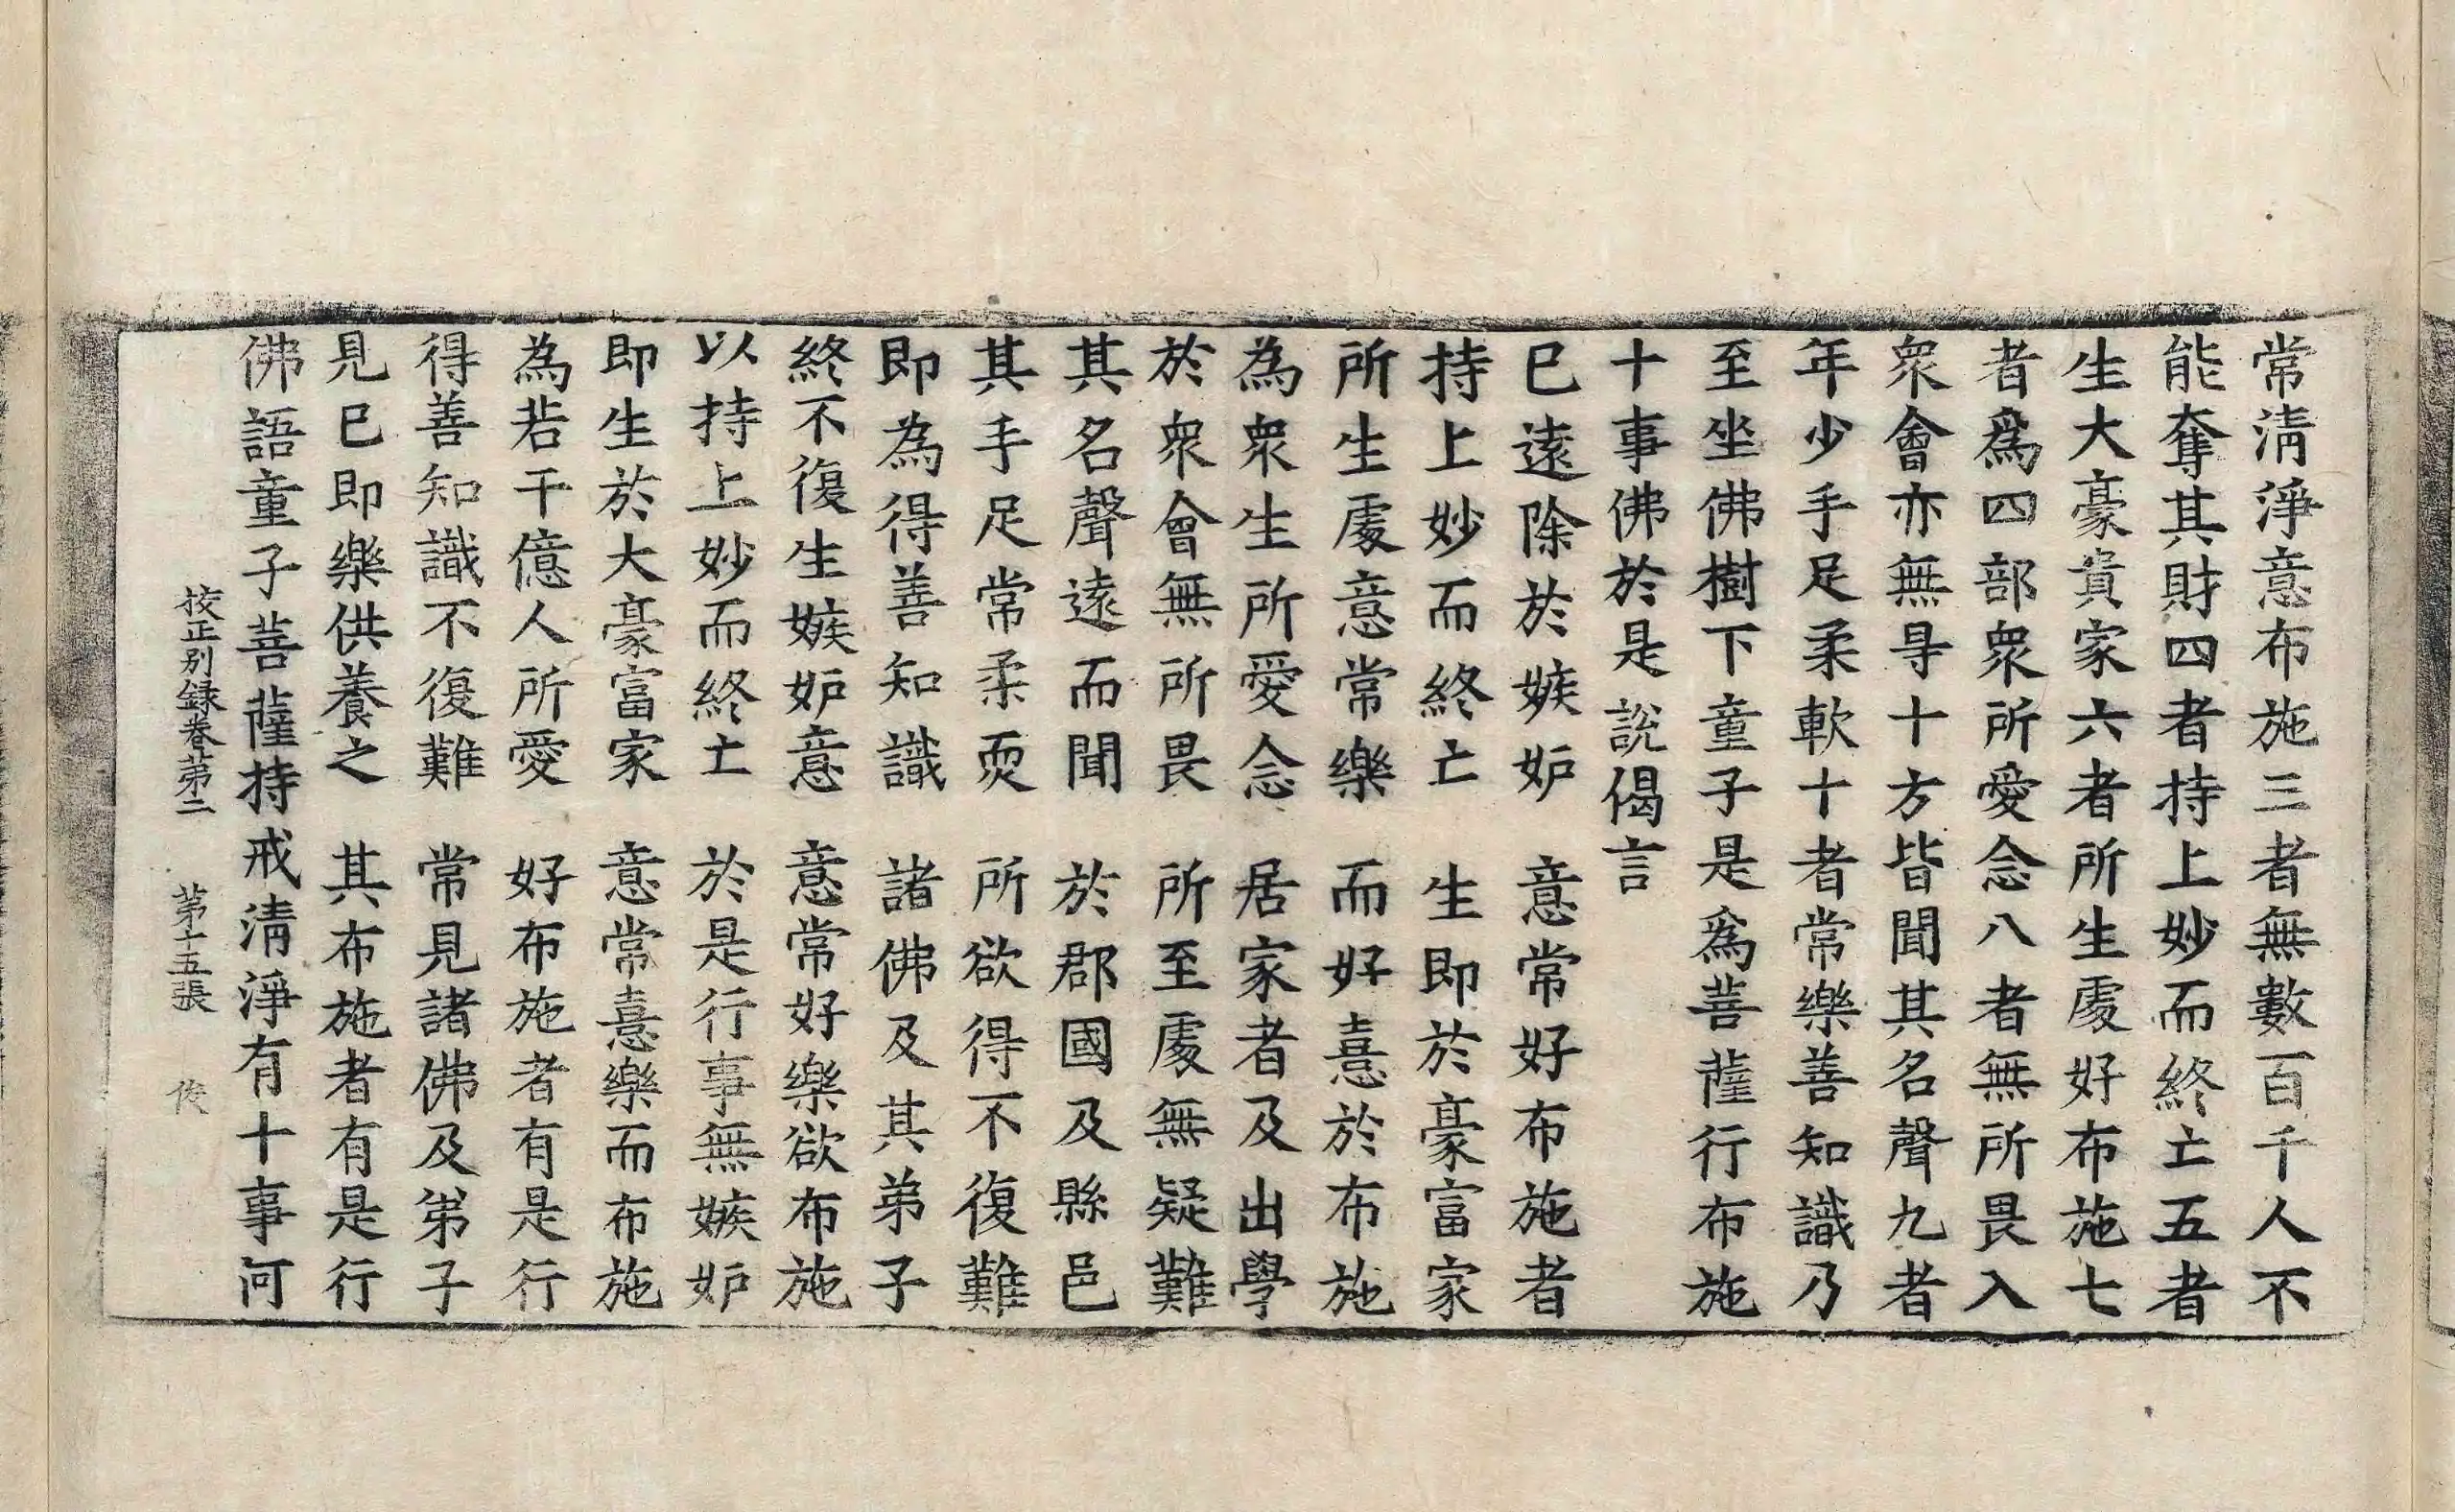 常清淨意布施三者無數百千人不
能奪其財四者持上妙而終亡五者
生大豪貴家六者所生處好布施七
者爲四部衆所愛念八者無所畏入
衆會亦無㝵十方皆聞其名聲九者
年少手足柔軟十者常樂善知識乃
至坐佛樹下童子是爲菩薩行布施
十事佛於是說偈言
已遠除於嫉妒　意常好布施者
持上妙而終亡　生即於豪富家
所生處意常樂　而好憙於布施
為衆生所愛念　居家者及出學
於衆會無所畏　所至處無疑難
其名聲遠而聞　於郡國及縣邑
其手足常柔耎　所欲得不復難
即為得善知識　諸佛及其弟子
終不復生嫉妒意　意常好樂欲布施
以持上妙而終亡　於是行事無嫉妒
即生於大豪富家　意常憙樂而布施
為若干億人所愛　好布施者有是行
得善知識不復難　常見諸佛及弟子
見已即樂供養之　其布施者有是行
佛語童子菩薩持戒清淨有十事何
挍正別録卷苐二　苐十五張